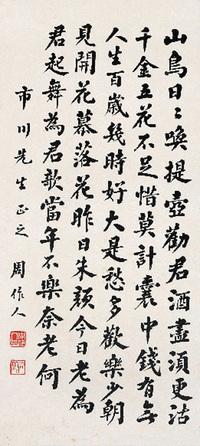 山鳥日〻喚提壺勸君酒盡須更沽
千金五花不足惜莫計囊中錢有無
人生百歲幾時好大是愁多歡樂少朝
見開花暮落花昨日朱顏今日老為
君起舞為君歌當年不樂奈老何
市川先生正之 周作人